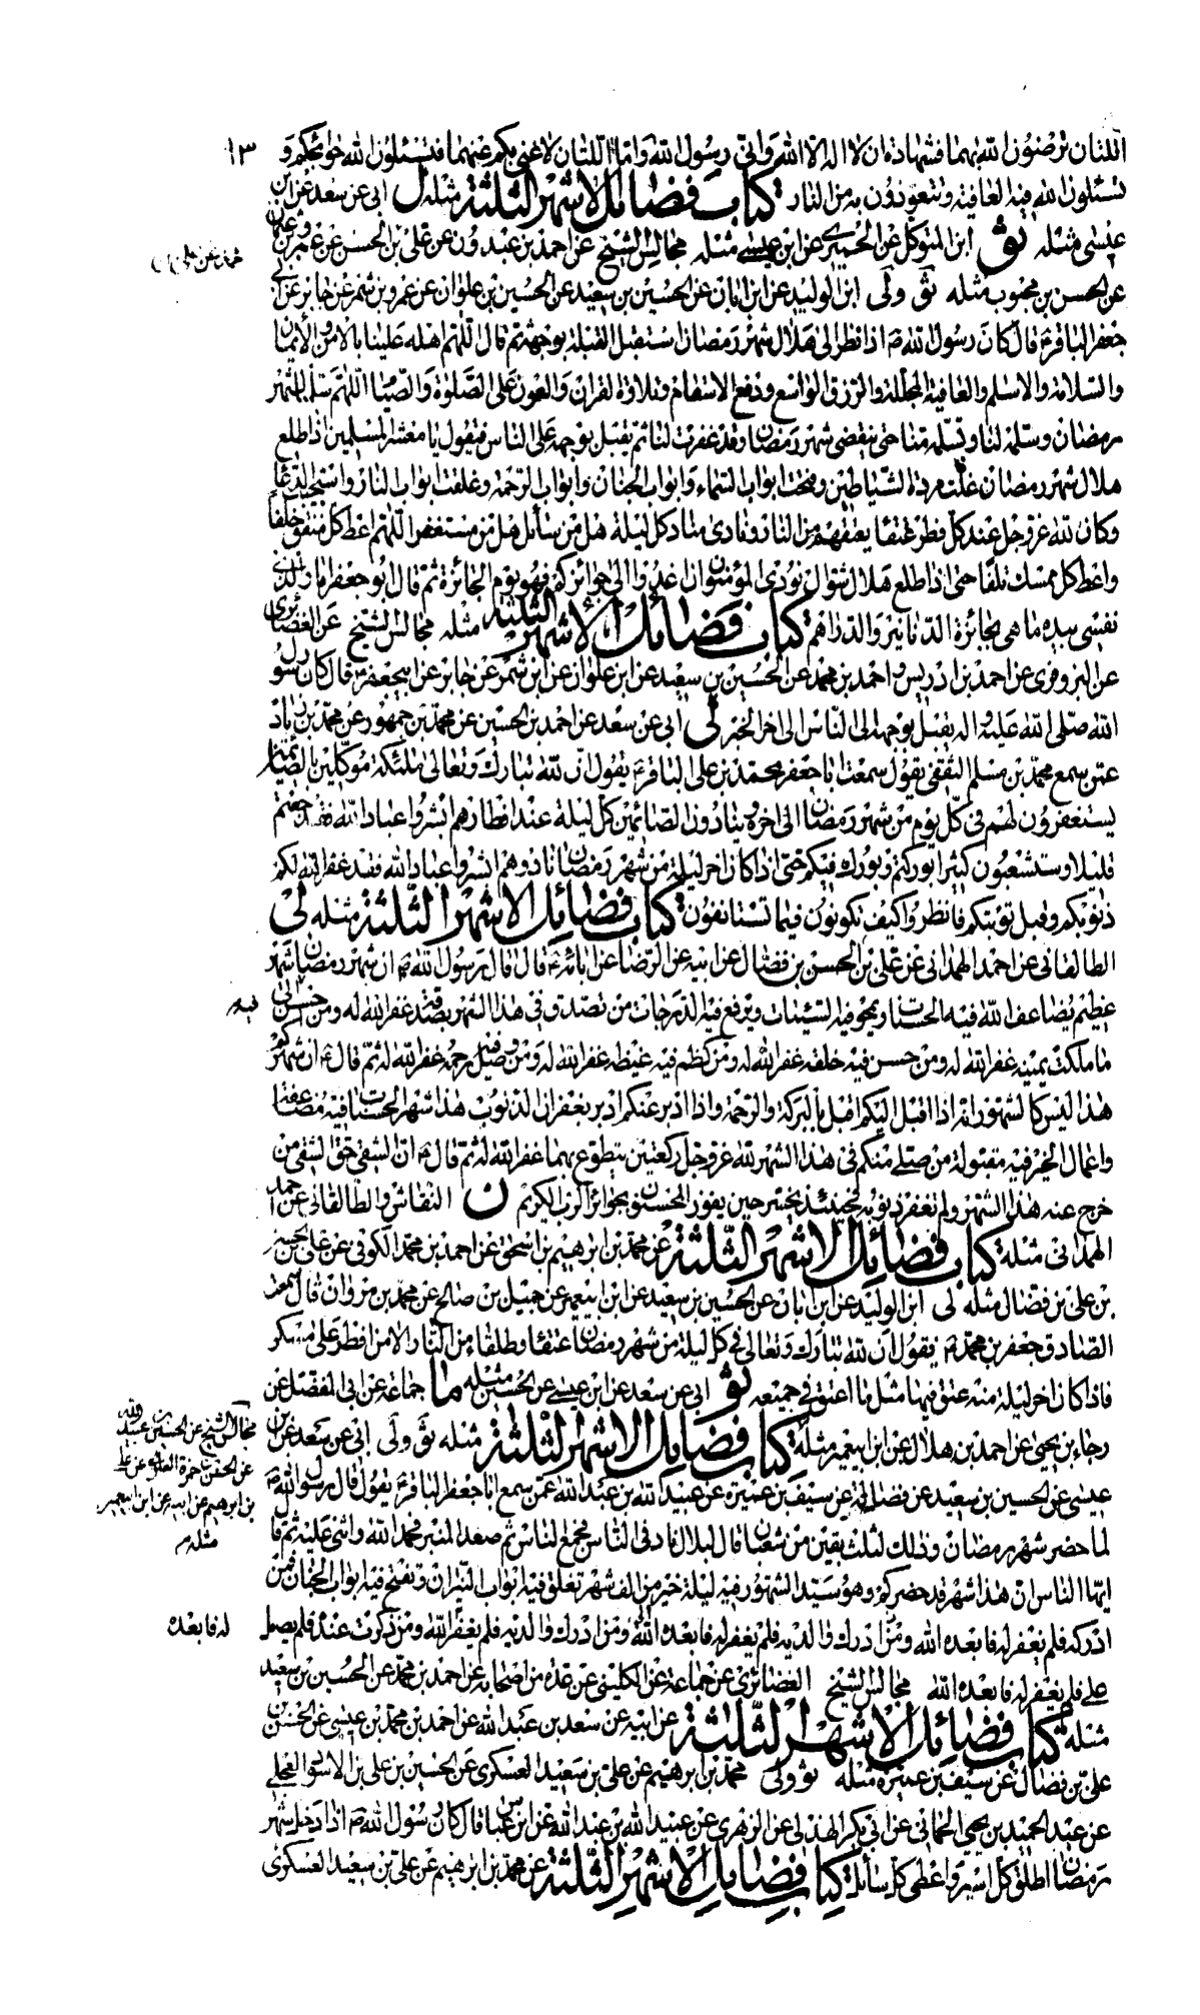 اللتان ترضون الله بهما فشهادة ان لا اله الا الله وانى رسول الله واما اللتان لا غنى بكم عنهما فتسئلون الله حوائجكم و
تسئلون الله فيه العافية وتتعوذون به من النار كتاب فضائل الاشهر الثلثة مثله ل ابى عن سعد عن ابن
عيسى مثله ثو ابن المتوكل عن الحميرى عن ابن عيسى مثله مجالس الشيخ عن احمد بن عبدون عن على بن
عن الحسن بن محبوب مثله ثو ولى ابن الوليد عن ابن ابان عن الحسين بن سعيد عن الحسين بن علوان عن عمرو بن شمر عن جابر عن ابى
جعفر الباقر ع قال كان رسول الله ص اذا نظر الى هلال شهر رمضان استقبل القبلة بوجهه ثم قال اللهم اهله علينا بالامن والايمان
والسلامة والاسلام والعافية المجللة والرزق الواسع ودفع الاسقام وتلاوة القران والعون على الصلوة والصيام اللهم سلمنا لشهر
رمضان وسلمه لنا وتسلمه منا حتى ينقضى شهر رمضان وقد غفرت لنا ثم يقبل بوجهه على الناس فيقول يا معشر المسلمين اذا طلع
هلال شهر رمضان غلت مردة الشياطين وفتحت ابواب السماء وابواب الجنان وابواب الرحمة وغلقت ابواب النار واستجيب الدعا
وكان لله عز وجل عند كل فطر عتقا يعتقهم من النار ونادى مناد كل ليلة هل من سائل هل من مستغفر اللهم اعط كل منفق خلفا
واعط كل ممسك تلفا حتى اذا طلع هلال شوال نودى المؤمنون ان اغدوا الى جوائزكم فهو يوم الجائزة ثم قال ابو جعفر اما والذى
نفسى بيده ما هى بجائزة الدنانير والدراهم كتاب فضائل الاشهر الثلثة مثله مجالس الشيخ عن الغضائرى
عن البزوفرى عن احمد بن ادريس واحمد بن محمد عن الحسين بن سعيد عن ابن علوان عن ابن شمر عن جابر عن ابيجعفر ع قال كان رسول
الله صلى الله عليه واله يقبل بوجهه الى الناس الى اخر الخبر لى ابى عن سعد عن احمد بن الحسين عن محمد بن جمهور عن محمد بن زياد
عمن سمع محمد بن مسلم الثقفى يقول سمعت ابا جعفر محمد بن على الباقر ع يقول ان لله تبارك وتعالى ملئكة موكلين بالصائمين
يستغفرون لهم فى كل يوم من شهر رمضان الى اخره وينادون الصائمين كل ليلة عند افطارهم ابشروا عباد الله فقد جعتم
قليلا وستشبعون كثيرا بوركتم وبورك فيكم حتى اذا كان اخر ليلة من شهر رمضان نادوهم ابشروا عباد الله فقد غفر الله لكم
ذنوبكم وقبل توبتكم فانظروا كيف تكونون فيما تستانفون كتاب فضائل الاشهر الثلثة مثله لى
الطالقانى عن احمد الهمدانى عن على بن الحسن بن فضال عن ابيه عن الرضا عن ابائه ع قال قال رسول الله ص ان شهر رمضان شهر
عظيم يضاعف الله فيه الحسنات ويمحو فيه السيئات ويرفع فيه الدرجات من تصدق فى هذا الشهر بصدقة غفر الله له ومن احسن الى
ما ملكت يمينه غفر الله له ومن حسن فيه خلقه غفر الله له ومن كظم فيه غيظه غفر الله له ومن وصل فيه رحمه غفر الله له ثم قال ع ان شهركم
هذا ليس كالشهور انه اذا اقبل اليكم اقبل بالبركة والرحمة واذا ادبر عنكم ادبر بغفران الذنوب هذا شهر الحسنات فيه مضاعفة
واعمال الخير فيه مقبولة من صلى منكم فى هذا الشهر لله عز وجل ركعتين يتطوع بهما غفر الله له ثم قال ع ان الشقى حق الشقى من
خرج عنه هذا الشهر ولم تغفر ذنوبه فحينئذ يخسر حين يفوز المحسنون بجوائز الرب الكريم ن النقاش والطالقانى عن احمد
الهمدانى مثله كتاب فضائل الاشهر الثلثة عن محمد بن ابرهيم بن اسحق عن احمد بن محمد الكوفى عن على بن الحسن
بن على بن فضال مثله لى ابن الوليد عن ابن ابان عن الحسين بن سعيد عن ابن ابيعمير عن جميل بن صالح عن محمد بن مروان قال سمعت
الصادق جعفر بن محمد ع يقول ان لله تبارك وتعالى فى كل ليلة من شهر رمضان عتقا وطلقاء من النار الا من افطر على مسكر
فاذا كان اخر ليلة منه عتق فيها مثل ما اعتق فى جميعه ثو ابى عن سعد عن ابن عيسى عن الحسين مثله ما جماعة عن ابى المفضل عن
رجاء بن يحيى عن احمد بن هلال عن ابن ابيعمير مثله كتاب فضائل الاشهر الثلثة مثله ثو ولى ابى عن سعد عن ابن
عيسى عن الحسين بن سعيد عن فضالة عن سيف بن عميرة عن عبيد الله بن عبد الله عمن سمع ابا جعفر الباقر ع يقول قال رسول الله ص
لما حضر شهر رمضان وذلك لثلث بقين من شعبان قال لبلال ناد فى الناس فجمع الناس ثم صعد المنبر فحمد الله واثنى عليه ثم قال
ايها الناس ان هذا شهر قد حضركم وهو سيد الشهور فيه ليلة خير من الف شهر تغلق فيه ابواب النيران وتفتح فيه ابواب الجنان فمن
ادركه فلم يغفر له فابعده الله ومن ادرك والديه فلم يغفر له فابعده الله ومن ذكرت عنده فلم يصل
على فلم يغفر له فابعده الله مجالس الشيخ الغضائرى عن جماعة عن الكلينى عن عدة من اصحابه عن احمد بن محمد عن الحسين بن سعيد
مثله كتاب فضائل الاشهر الثلثة عن ابيه عن سعد بن عبد الله عن احمد بن محمد بن عيسى عن الحسن بن
على بن فضال عن سيف بن عميرة مثله ثو ولى محمد بن ابرهيم عن على بن سعيد العسكرى عن الحسين بن على بن الاسود العجلى
عن عبد الحميد بن يحيى الحمانى عن ابى بكر الهذلى عن الزهرى عن عبيد الله بن عبد الله عن ابن عباس قال كان رسول الله ص اذا دخل شهر
رمضان اطلق كل اسير واعطى كل سائل كتاب فضائل الاشهر الثلثة عن محمد بن ابرهيم عن على بن سعيد العسكرى
١٣
فيه
مجالس الشيخ عن الحسين بن عبيد الله
عن الحسن بن حمزة العلوى عن على
بن ابرهيم عن ابيه عن ابن ابيعمير
مثله
له فابعده